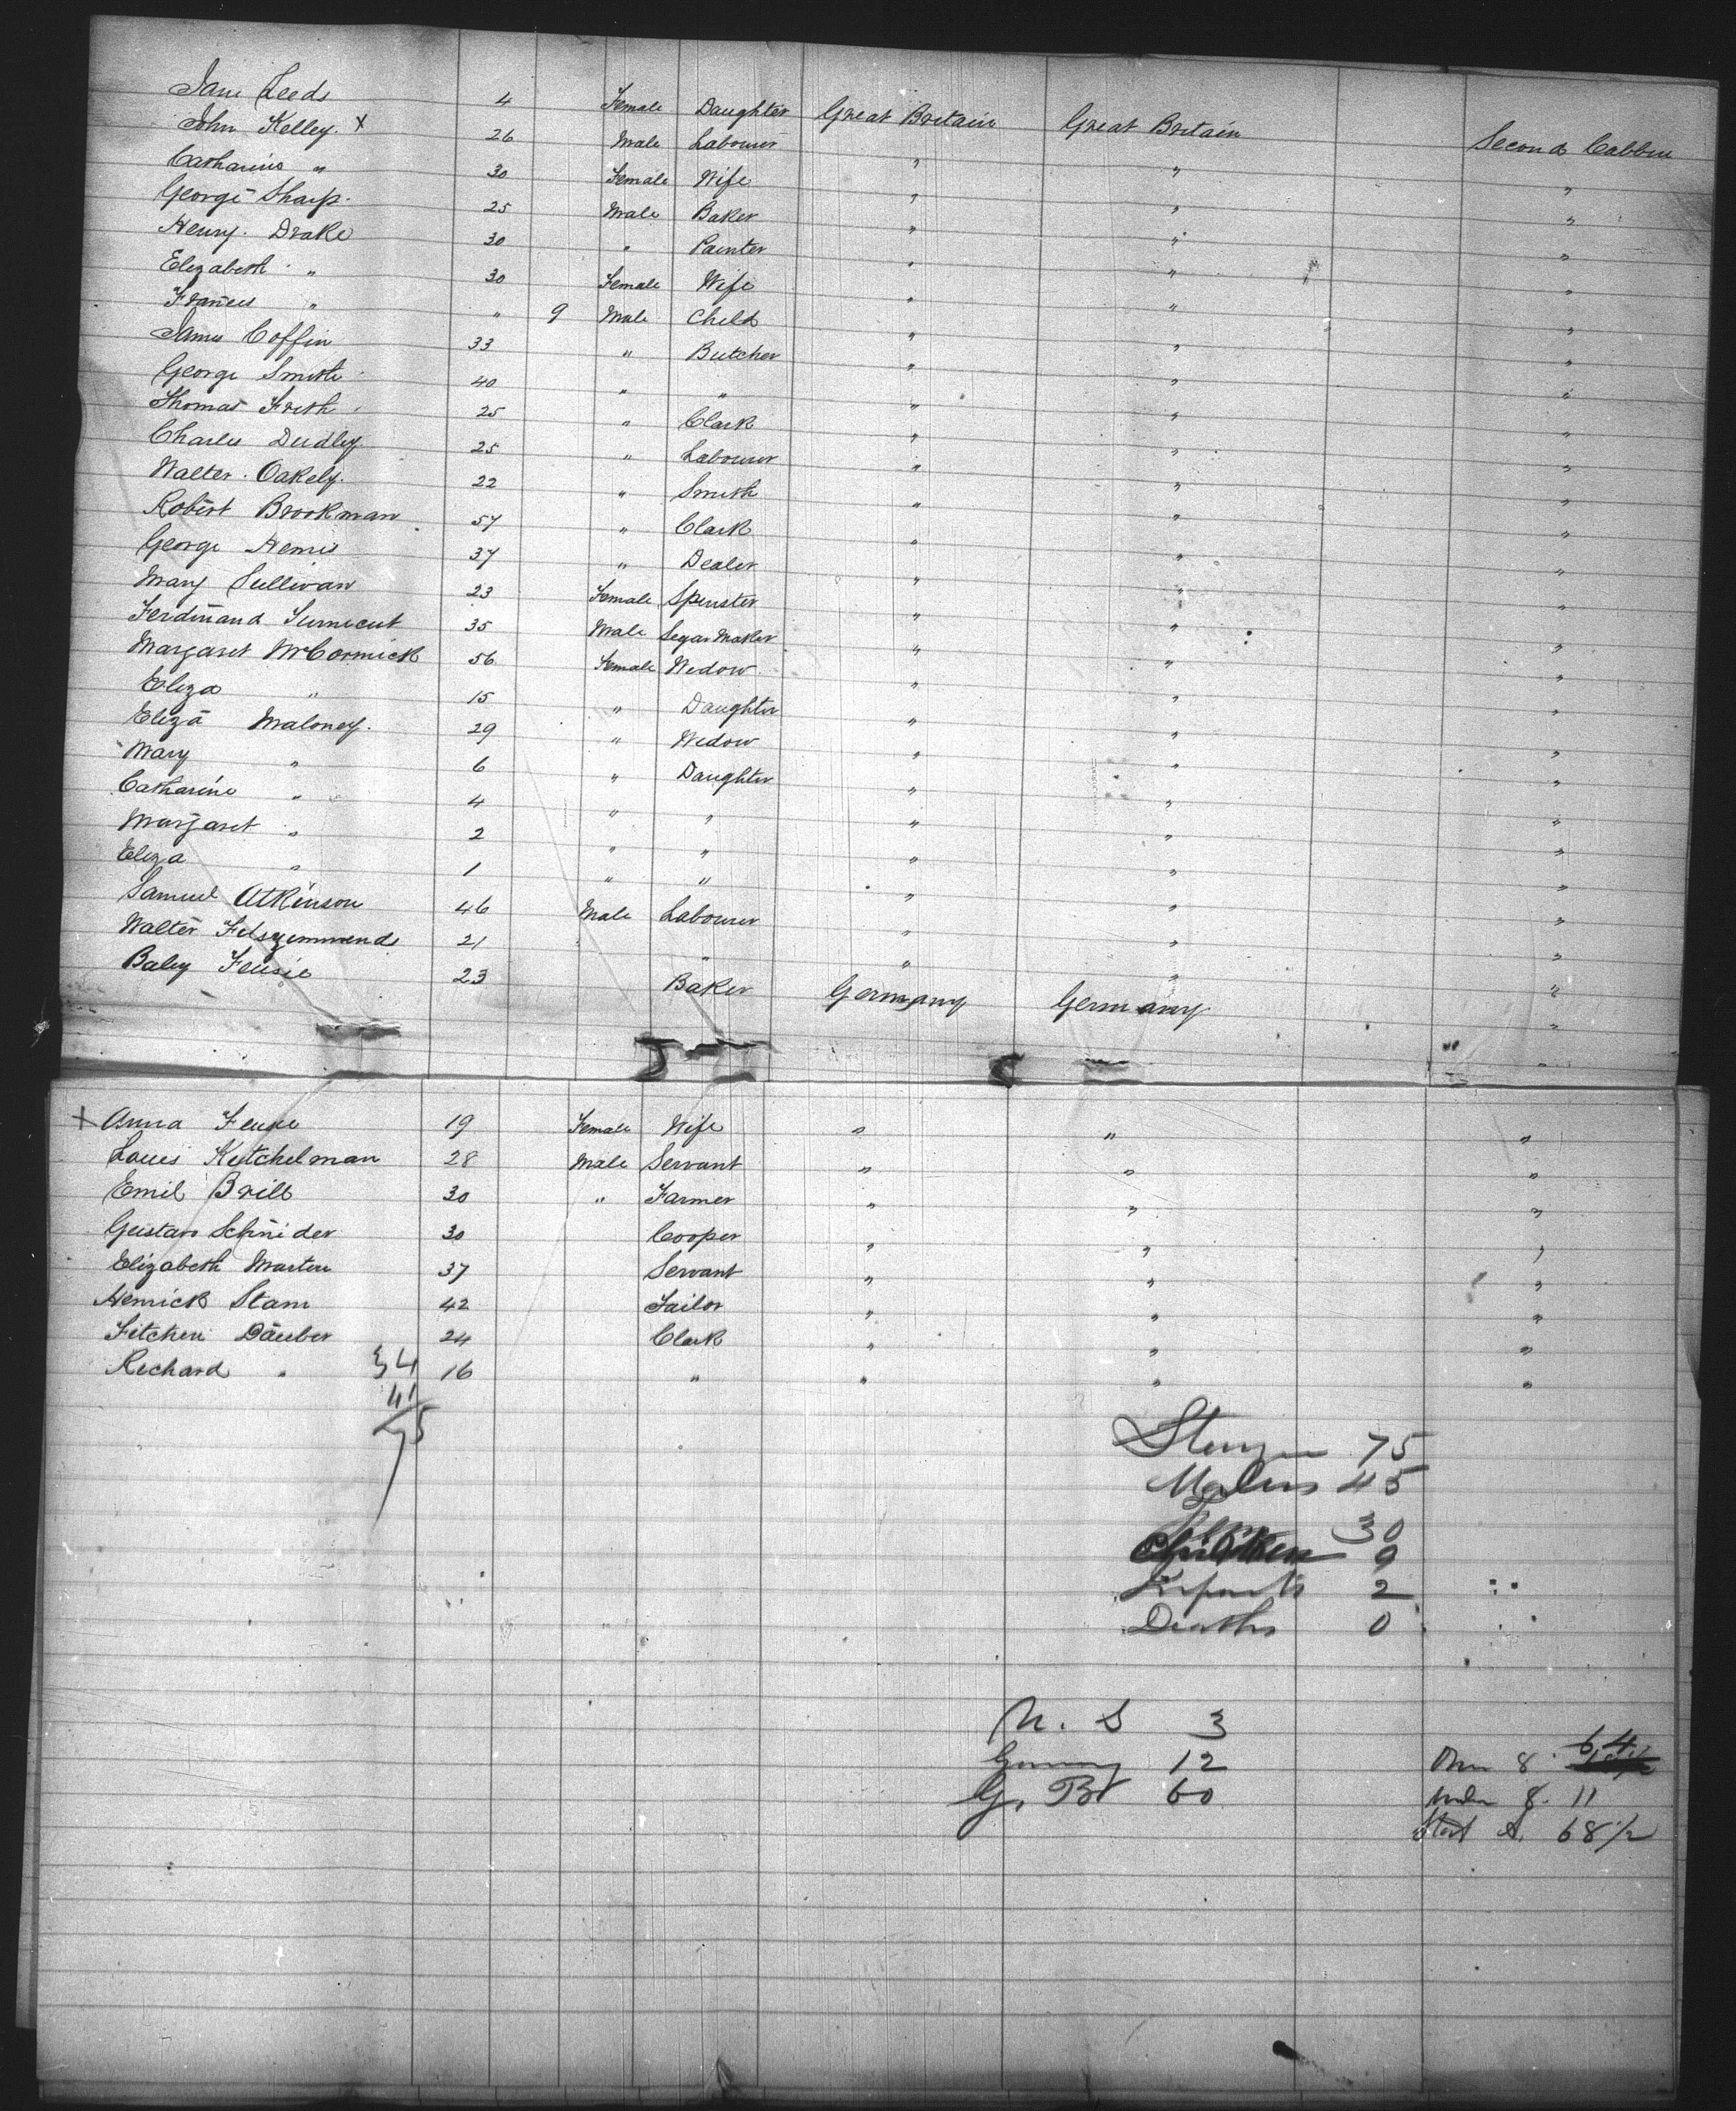 Jane Leeds 4 Female Daughter Great Britain Great Britain Second Cabbin
John Kelley. x 26 Male Labourer " " "
Catharine " 30 Female Wife " " "
George Sharp. 25 Male Baker " " "
Henry. Drake 30 " Painter " " "
Elizabeth " 30 Female Wife " " "
Frances " " 9 Male Child " " "
James Coffin 33 " Butcher " " "
George Smith 40 " " " " "
Thomas Frith 25 " Clark " " "
Charles Dudley. 25 " Labourer " " "
Walter. Oakely. 22 " Smith " " "
Robert Brookman 57 " Clark " " "
George Hemis 37 " Dealer " " "
Mary Sullivan 23 Female Spinster " " "
Ferdinand 35 Male Segar Maker " " "
Margaret McCormick 56 Female Widow " " "
Eliza " 15 " Daughter " " "
Eliza Maloney. 29 " Widow " " "
Mary " 6 " Daughter " " "
Catharine " 4 " " " " "
Margaret " 2 " " " " "
Eliza " 1 " " " " "
Samuel Atkinson 46 Male Labourer " " "
Walter Fitsgemmends 21 " " " "
Baley 23 Baker Germany Germany "
x Anna 19 Female Wife " " "
Louis Kutchelman 28 Male Servant " " "
Emil Brill 30 " Farmer " " "
Gustavo Schnider 30 Cooper " " "
Elizabeth Martin 37 Servant " " "
Henrick Stam 42 Tailor " " "
Däuber 24 Clark " " "
Richard " 16 " " " "
34
41
75
75
Males 45
30
Children 9
Infants 2
Deaths 0
U. S 3
Germany 12
Gr Bt 60
Over 8 64
under 8. 11
Stat A. 68 1/2